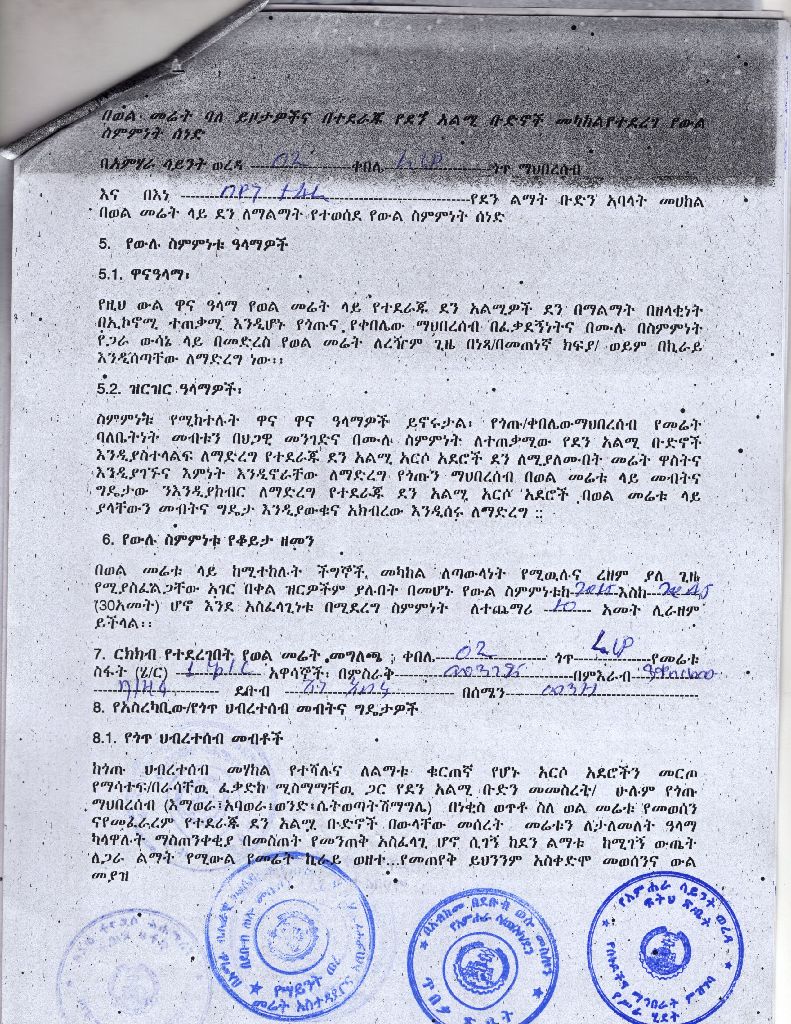 በወል መሬት ባለ ይዞታዎችና በተደራጁ የደን አልሚ ቡድኖች መካከልየተደረግ የውል
ስምምነት ሰነድ
በአምሃራ ሳይንት ወረዳ ---------- 02 ----------ቀበሌ ---------- ጎጥ ማህበረሰብ
እና በእነ -----------------------------------የደን ልማት ቡድን አባላት መሀከል
በወል መሬት ላይ ደን ለማልማት የተወሰደ የውል ስምምነት ሰነድ
5. የውሉ ስምምነቱ ዓላማዎች
5.1. ዋናዓላማ፡
የዚህ ውል ዋና ዓላማ የወል መሬት ላይ የተደራጁ ደን አልሚዎች ደን በማልማት በዘላቂነት
በኢኮኖሚ ተጠቃሚ እንዲሆኑ የጎጡና የቀበሌው ማህበረሰብ በፈቃደኝነትና በሙሉ በስምምነት
የጋራ ውሳኔ ላይ በመድረስ የወል መሬት ለረዥም ጊዜ በነጻ/በመጠነኛ ክፍያ/ ወይም በኪራይ
እንዲሰጣቸው ለማድረግ ነው፡፡
5.2. ዝርዝር ዓላማዎች፡
ስምምነቱ የሚከተሉት ዋና ዋና ዓላማዎች ይኖሩታል፡ የጎጡ/ቀበሌውማህበረሰብ የመሬት
ባለቤትነት መብቱን በህጋዊ መንገድና በሙሉ ስምምነት ለተጠቃሚው የደን አልሚ ቡድኖች
እንዲያስተላልፍ ለማድረግ የተደራጁ ደን አልሚ አርሶ አደሮች ደን ለሚያለሙበት መሬት ዋስትና
እንዲያገኙና እምነት እንዲኖራቸው ለማድረግ የጎጡን ማህበረሰብ በወል መሬቱ ላይ መብትና
ግዴታው ንእንዲያከብር ለማድረግ የተደራጁ ደን አልሚ አርሶ አደሮች በወል መሬቱ ላይ
ያላቸውን መብትና ግዴታ እንዲያውቁና አክብረው እንዲሰሩ ለማድረግ ።
6. የውሉ ስምምነቱ የቆይታ ዘመን
በወል መሬቱ ላይ ከሚተከሉት ችግኞች መካከል ለጣውላነት የሚዉሉና ረዘም ያለ ጊዜ
የሚያስፈልጋቸው አገር በቀል ዝርዎችም ያሉበት በመሆኑ የውል ስምምነቱከ-2015-እስከ-2045
(30አመት) ሆኖ እንደ አስፈላጊነቱ በሚደረግ ስምምነት ለተጨማሪ --10-- አመት ሊራዘም
ይችላል፡፡
7. ርክክብ የተደረገበት የወል መሬት መግለጫ ; ቀበሌ------02---------- ጎጥ ----------የመሬቱ
ስፋት (ሄ/ር) ---------- አዋሳኞች፡ በምስራቅ----------መንገድ----------በምእራብ----------
---------- ደቡብ ---------- በሰሜን----------
8. የአስረካቢው/የጎጥ ህብረተሰብ መብትና ግዴታዎች
8.1. የጎጥ ህብረተሰብ መብቶች
ከጎጡ ህብረተሰብ መሃከል የተሻሉና ለልማቱ ቁርጠኛ የሆኑ አርሶ አደሮችን መርጦ
የማሳተፍ/በራሳቸዉ ፈቃድከ ሚስማማቸዉ ጋር የደን አልሚ ቡድን መመስረት/ ሁሉም የጎጡ
ማህበረሰብ (እማወራ፤አባወራ፤ወንድ፤ሴትወጣትሽማግሌ) በነቂስ ወጥቶ ስለ ወል መሬቱ የመወሰን
ናየመፈራረም የተደራጁ ደን አልሚ ቡድኖች በውላቸው መሰረት መሬቱን ለታለመለት ዓላማ
ካላዋሉት ማስጠንቀቂያ በመስጠት የመንጠቅ አስፈላጊ ሆኖ ሲገኝ ከደን ልማቱ ከሚገኝ ውጤት
ለጋራ ልማት የሚውል የመሬት ኪራይ ወዘተ...የመጠየቅ ይህንንም አስቀድሞ መወሰንና ውል
መያዝ
የአምሐራ ሳይንት ወረዳ
ፍትህ ጽ/ቤት